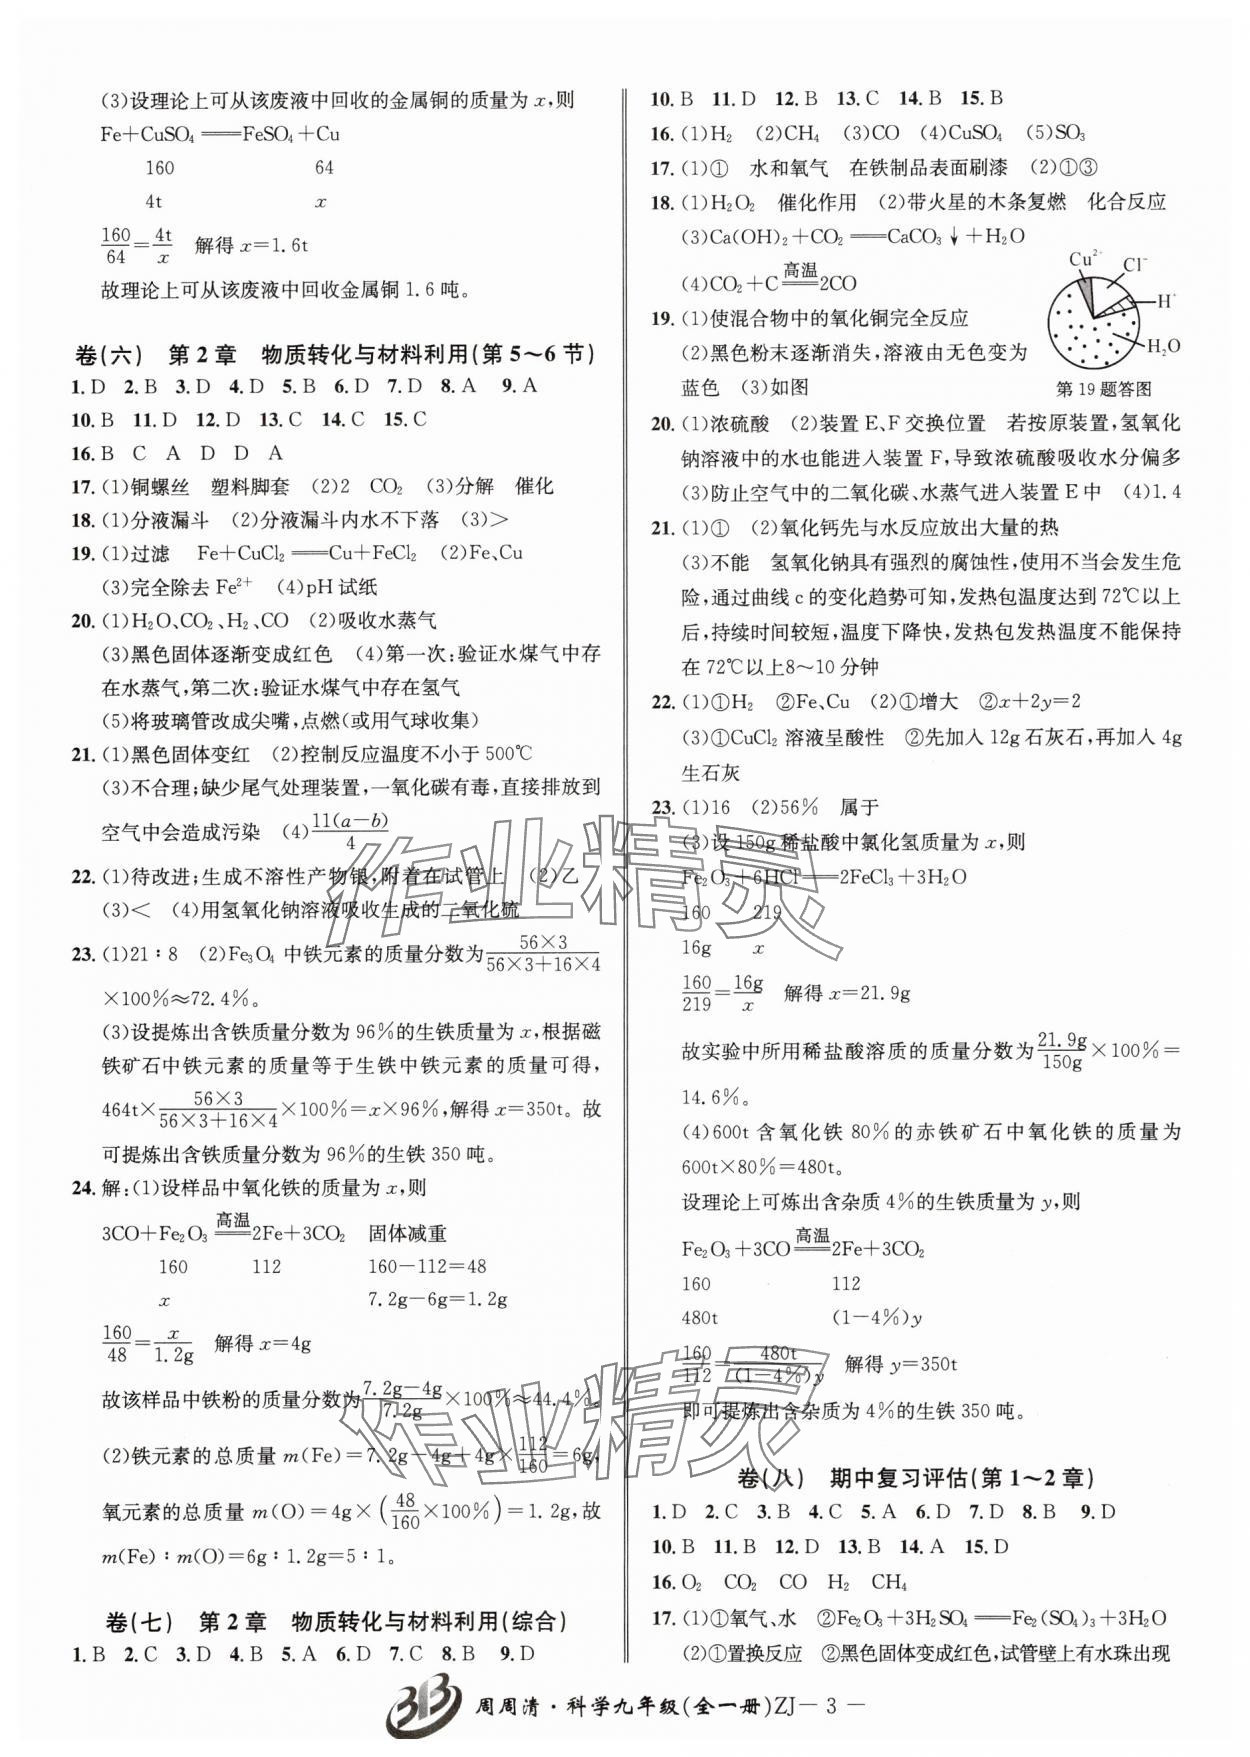 (3)设理论上可从该废液中回收的金属铜的质量为 x,则
Fe+CuSO₄══FeSO₄+Cu
160 64
4t x
160/64=4t/x 解得 x=1.6t
故理论上可从该废液中回收金属铜 1.6 吨。
卷(六) 第 2 章 物质转化与材料利用(第 5~6 节)
1. D 2. B 3. D 4. D 5. B 6. D 7. D 8. A 9. A
10. B 11. D 12. D 13. C 14. C 15. C
16. B C A D D A
17. (1)铜螺丝 塑料脚套 (2)2 CO₂ (3)分解 催化
18. (1)分液漏斗 (2)分液漏斗内水不下落 (3)>
19. (1)过滤 Fe+CuCl₂══Cu+FeCl₂ (2)Fe、Cu
(3)完全除去 Fe²⁺ (4)pH 试纸
20. (1)H₂O、CO₂、H₂、CO (2)吸收水蒸气
(3)黑色固体逐渐变成红色 (4)第一次:验证水煤气中存
在水蒸气,第二次:验证水煤气中存在氢气
(5)将玻璃管改成尖嘴,点燃(或用气球收集)
21. (1)黑色固体变红 (2)控制反应温度不小于 500℃
(3)不合理;缺少尾气处理装置,一氧化碳有毒,直接排放到
空气中会造成污染 (4)11(a-b)/4
22. (1)待改进;生成不溶性产物银,附着在试管上 (2)乙
(3)< (4)用氢氧化钠溶液吸收生成的二氧化硫
23. (1)21∶8 (2)Fe₃O₄ 中铁元素的质量分数为 56×3/(56×3+16×4)
×100%≈72.4%。
(3)设提炼出含铁质量分数为 96%的生铁质量为 x,根据磁
铁矿石中铁元素的质量等于生铁中铁元素的质量可得,
464t×56×3/(56×3+16×4)×100%=x×96%,解得 x=350t。故
可提炼出含铁质量分数为 96%的生铁 350 吨。
24. 解:(1)设样品中氧化铁的质量为 x,则
3CO+Fe₂O₃ 高温══ 2Fe+3CO₂ 固体减重
160 112 160-112=48
x 7.2g-6g=1.2g
160/48=x/1.2g 解得 x=4g
故该样品中铁粉的质量分数为 (7.2g-4g)/7.2g×100%≈44.4%。
(2)铁元素的总质量 m(Fe)=7.2g-4g+4g×112/160=6g,
氧元素的总质量 m(O)=4g×(48/160×100%)=1.2g,故
m(Fe)∶m(O)=6g∶1.2g=5∶1。
卷(七) 第 2 章 物质转化与材料利用(综合)
1. B 2. C 3. D 4. B 5. A 6. D 7. C 8. B 9. D
10. B 11. D 12. B 13. C 14. B 15. B
16. (1)H₂ (2)CH₄ (3)CO (4)CuSO₄ (5)SO₃
17. (1)① 水和氧气 在铁制品表面刷漆 (2)①③
18. (1)H₂O₂ 催化作用 (2)带火星的木条复燃 化合反应
(3)Ca(OH)₂+CO₂══CaCO₃↓+H₂O
(4)CO₂+C 高温══ 2CO
19. (1)使混合物中的氧化铜完全反应
(2)黑色粉末逐渐消失,溶液由无色变为
蓝色 (3)如图
Cu²⁺
Cl⁻
H⁺
H₂O
第 19 题答图
20. (1)浓硫酸 (2)装置 E、F 交换位置 若按原装置,氢氧化
钠溶液中的水也能进入装置 F,导致浓硫酸吸收水分偏多
(3)防止空气中的二氧化碳、水蒸气进入装置 E 中 (4)1.4
21. (1)① (2)氧化钙先与水反应放出大量的热
(3)不能 氢氧化钠具有强烈的腐蚀性,使用不当会发生危
险,通过曲线 c 的变化趋势可知,发热包温度达到 72℃以上
后,持续时间较短,温度下降快,发热包发热温度不能保持
在 72℃以上8~10 分钟
22. (1)①H₂ ②Fe、Cu (2)①增大 ②x+2y=2
(3)①CuCl₂ 溶液呈酸性 ②先加入 12g 石灰石,再加入 4g
生石灰
23. (1)16 (2)56% 属于
(3)设 150g 稀盐酸中氯化氢质量为 x,则
Fe₂O₃+6HCl══2FeCl₃+3H₂O
160 219
16g x
160/219=16g/x 解得 x=21.9g
故实验中所用稀盐酸溶质的质量分数为 21.9g/150g×100%=
14.6%。
(4)600t 含氧化铁 80%的赤铁矿石中氧化铁的质量为
600t×80%=480t。
设理论上可炼出含杂质 4%的生铁质量为 y,则
Fe₂O₃+3CO 高温══ 2Fe+3CO₂
160 112
480t (1-4%)y
160/112=480t/(1-4%)y 解得 y=350t
即可提炼出含杂质为 4%的生铁 350 吨。
卷(八) 期中复习评估(第 1~2 章)
1. D 2. C 3. B 4. C 5. A 6. D 7. D 8. B 9. D
10. B 11. B 12. D 13. B 14. A 15. D
16. O₂ CO₂ CO H₂ CH₄
17. (1)①氧气、水 ②Fe₂O₃+3H₂SO₄══Fe₂(SO₄)₃+3H₂O
(2)①置换反应 ②黑色固体变成红色,试管壁上有水珠出现
作业精灵
作业精灵
3B 周周清·科学九年级(全一册)ZJ— 3 —